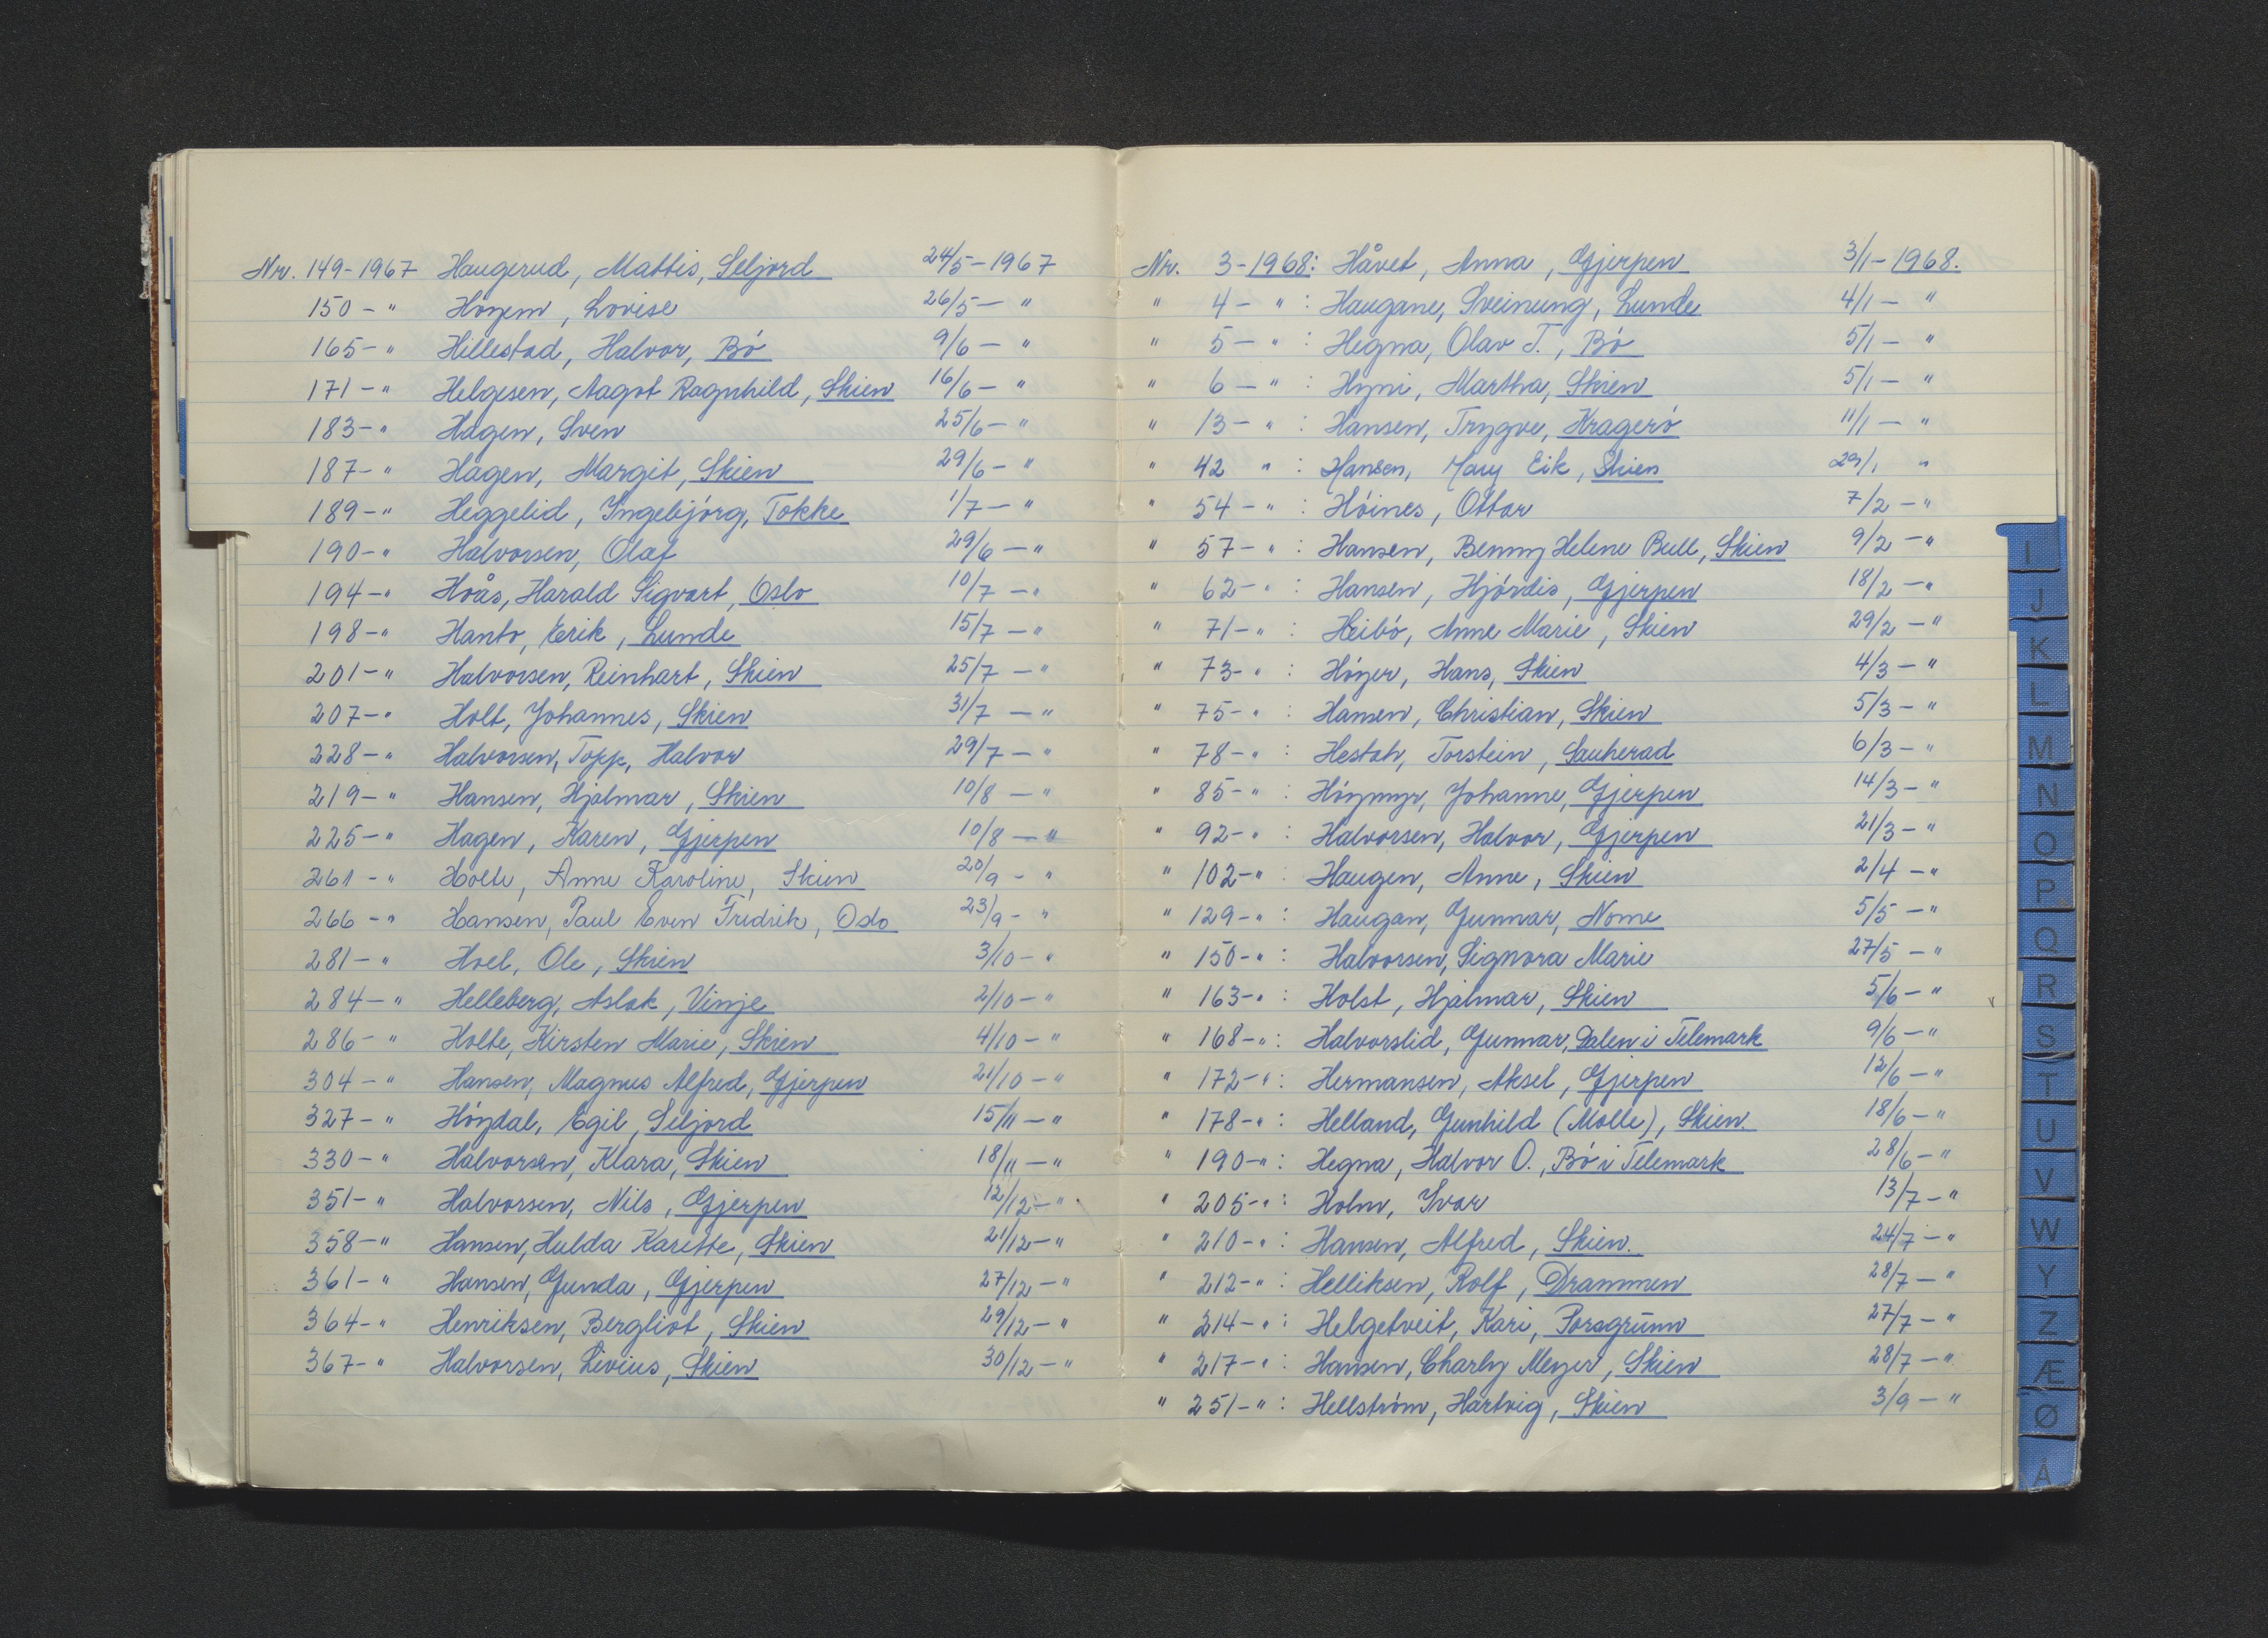 Nr. 149-1967 Haugerud, Mattis, Seljord 24/5-1967
150-" Høyem, Lovise 26/5-"
165-" Hillestad, Halvor, Bø 9/6-"
171-" Helgesen, Aagot Ragnhild, Skien 16/6-"
183-" Hagen, Sven 25/6-"
187-" Hagen, Margit, Skien 29/6-"
189-" Heggelid, Yngebjørg, Tokke 1/7-"
190-" Halvorsen, Olaf 29/6-"
194-" Hoås, Harald Sigvart, Oslo 10/7-"
198-" Hanto, Erik, Lunde 15/7-"
201-" Halvorsen, Reinhart, Skien 25/7-"
207-" Holt, Johannes, Skien 31/7-"
228-" Halvorsen, Topp, Halvor 29/7-"
219-" Hansen, Hjalmar, Skien 10/8-"
225-" Hagen, Karen, Gjerpen 10/8-"
261-" Holte, Anne Karoline, Skien 20/9-"
266-" Hansen, Paul Even Fridrik, Oslo 23/9-"
281-" Hoel, Ole, Skien 3/10-"
284-" Helleberg, Aslak, Vinje 2/10-"
286-" Holte, Kirsten Marie, Skien 4/10-"
304-" Hansen, Magnus Alfred, Gjerpen 21/10-"
327-" Høydal, Egil, Seljord 15/11-"
330-" Halvorsen, Klara, Skien 18/11-"
351-" Halvorsen, Nils, Gjerpen 12/12-"
358-" Hansen, Hulda Karette, Skien 21/12-"
361-" Hansen, Gunda, Gjerpen 27/12-"
364-" Henriksen, Bergliot, Skien 29/12-"
367-" Halvorsen, Livius, Skien 30/12-"
Nr. 3-1968: Håvet, Anna, Gjerpen 3/1-1968.
" 4-": Haugane, Sveinung, Lunde 4/1-"
" 5-": Hegna, Olav T., Bø 5/1-"
" 6-": Hyni, Martha, Skien 5/1-"
" 13-": Hansen, Trygve, Kragerø 11/1-"
" 42 ": Hansen, Mary Eik, Skien 29/1 "
" 54-": Høines, Ottar 7/2-"
" 57-": Hansen, Benny Helene Bull, Skien 9/2-"
" 62-": Hansen, Hjørdis, Gjerpen 18/2-"
" 71-": Heibø, Anne Marie, Skien 29/2-"
" 73-": Høyer, Hans, Skien 4/3-"
" 75-": Hansen, Christian, Skien 5/3-"
" 78-": Hestah, Torstein, Sauherad 6/3-"
" 85-": Høymyr, Johanne, Gjerpen 14/3-"
" 92-": Halvorsen, Halvor, Gjerpen 21/3-"
" 102-": Haugen, Anne, Skien 2/4-"
" 129-": Haugan, Gunnar, Nome 5/5-"
" 150-": Halvorsen, Signora Marie 27/5-"
" 163-": Holst, Hjalmar, Skien 5/6-"
" 168-": Halvorslid, Gunnar, Dalen i Telemark 9/6-"
" 172-": Hermansen, Aksel, Gjerpen 12/6-"
" 178-": Helland, Gunhild (Molle), Skien. 18/6-"
" 190-": Hegna, Halvor O., Bø i Telemark 28/6-"
" 205-": Holm, Yvar 13/7-"
" 210-": Hansen, Alfred, Skien. 24/7-"
" 212-": Helliksen, Rolf, Drammen 28/7-"
" 214-": Helgetveit, Kari, Porsgrunn 27/7-"
" 217-": Hansen, Charly Meyer, Skien 28/7-"
" 251-": Hellstrøm, Hartvig, Skien 3/9-"
I
J
K
L
M
N
O
P
Q
R
S
T
U
V
W
Y
Z
Æ
Ø
Å